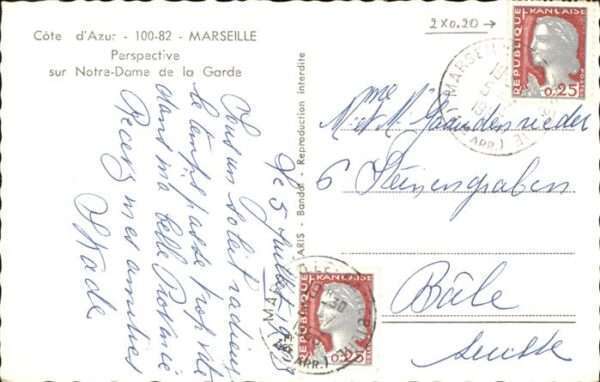 Côte d'Azur - 100-82 - MARSEILLE
Perspective
sur Notre-Dame de la Garde
2x0.20 →
RÉPUBLIQUE FRANÇAISE
0,25
MARSEILLE
ARR.)
Le 5 Juillet
Sous un soleil radieux
le temps passe trop vite
dans ma belle Provence
Recevez mes amitiés
PARIS - Bandol - Reproduction interdite
M et Mme Gaudenrieder
6 Steinengraben
Bâle
Suisse
RÉPUBLIQUE FRANÇAISE
0,25
ARR.)